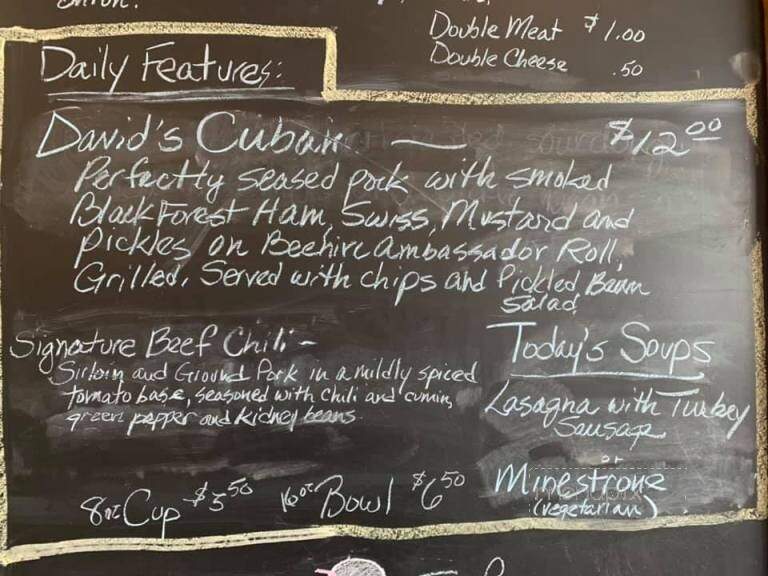 Double Meat $1.00
Double Cheese .50
Daily Features:
David's Cuban — $12.00
Perfectly seased pork with smoked
Black Forest Ham, Swiss, Mustard and
Pickles on Beehive Ambassador Roll,
Grilled. Served with chips and Pickled Bean
Salad
Signature Beef Chili -
Sirloin and Ground Pork in a mildly spiced
tomato base, seasoned with chili and cumin,
green pepper and kidney beans.
8oz Cup $5.50 16oz Bowl $6.50
Today's Soups
Lasagna with Turkey
Sausage
or
Minestrone
(vegetarian)